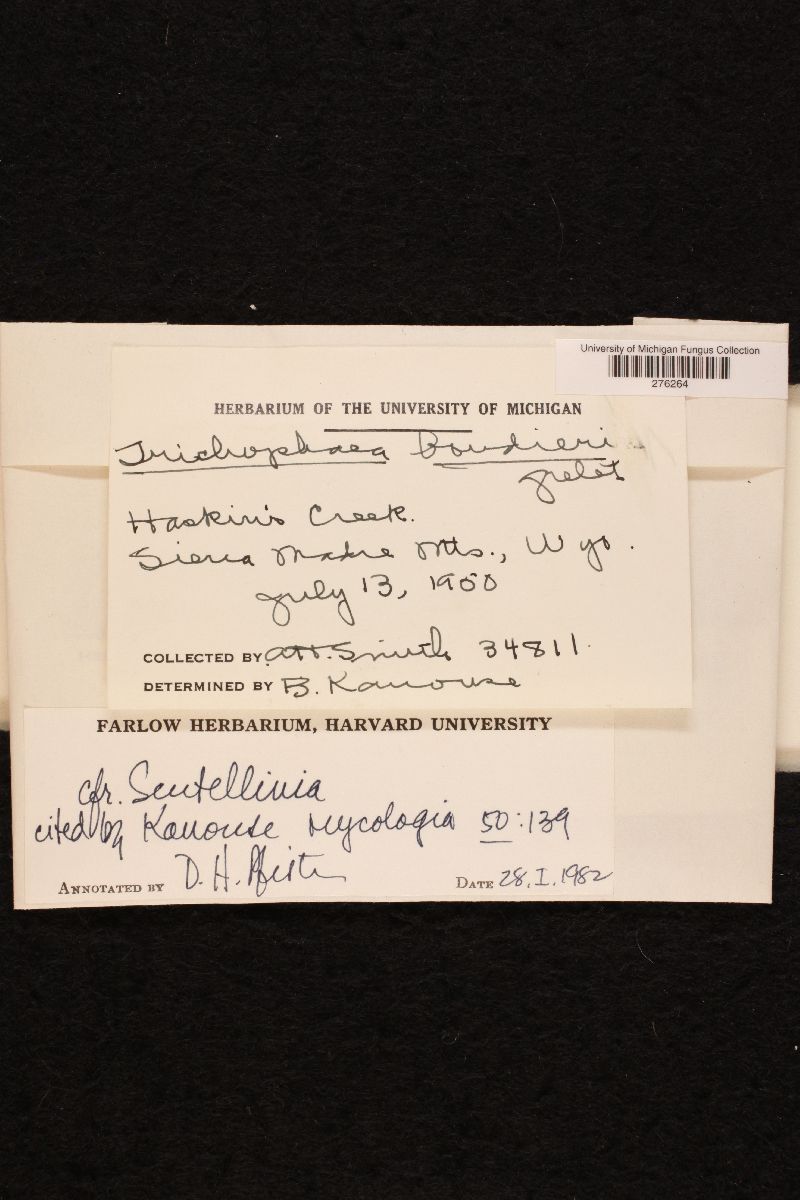 University of Michigan Fungus Collection
276264
HERBARIUM OF THE UNIVERSITY OF MICHIGAN
Trichophaea Boudieri
Grelet
Haskin's Creek.
Sierra Madre Mts., Wyo.
July 13, 1950
COLLECTED BY A.H. Smith 34811
DETERMINED BY B. Kanouse
FARLOW HERBARIUM, HARVARD UNIVERSITY
cfr. Scutellinia
cited by Kanouse Mycologia 50:139
ANNOTATED BY D. H. Pfister DATE 28.I.1982